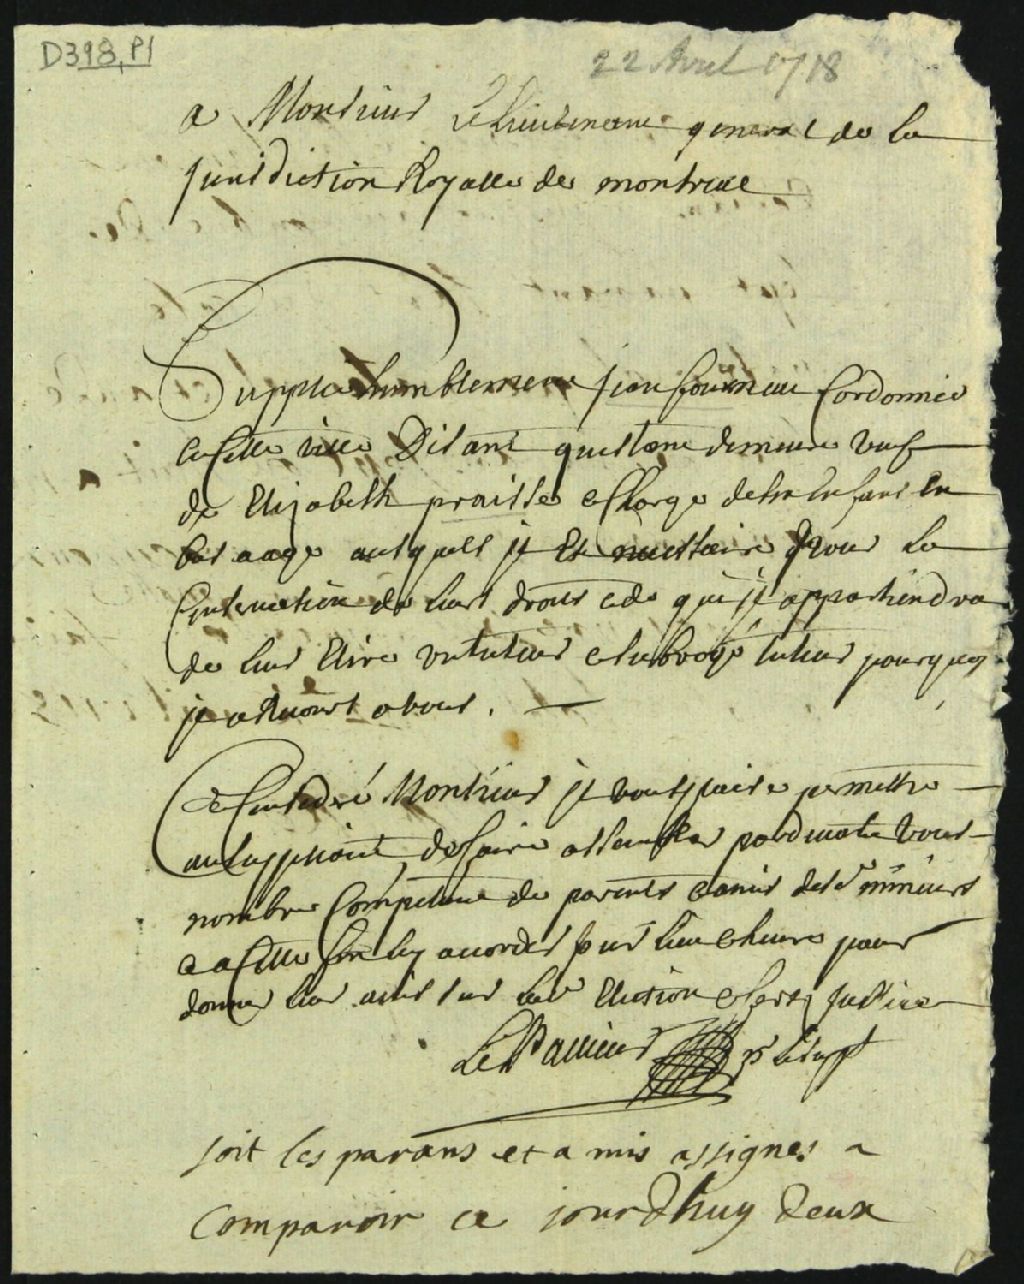 D318, P1
22 Avril 1718
a Monsieur Le Lieutenant general de la
Jurisdiction Royalle de montreal
Supplie humblement jean fourneau Cordonnier
de cette ville Disant quil est demeuré veuf
de Elizabeth praisse et Charge de trois Enfans En
bas aage ausquels il Est necessaire pour la
Conservation de leurs droits et de qu'il appartiendra
de leur Elire un tuteur et subrogé tuteur pourquoy
il a Recours a vous .
Ce Consideré Monsieur il vous plaise permettre
au suppliant de faire assembler pardevant vous
nombre Competent de parents et amis desd mineurs
et a cette fin luy accorder jour lieu et heure pour
donner leur avis sur lad Election et ferez justice
Le Pallieur pr le supt
soit les parans et a mis assignes a
Comparoir ce jourdhuy deux